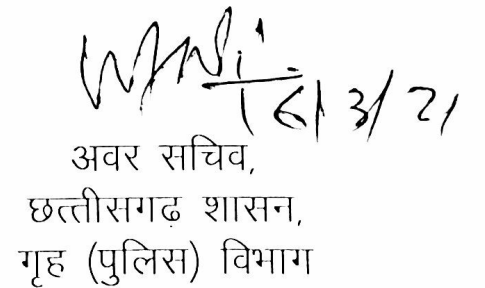 16/3/21
अवर सचिव,
छत्तीसगढ़ शासन,
गृह (पुलिस) विभाग